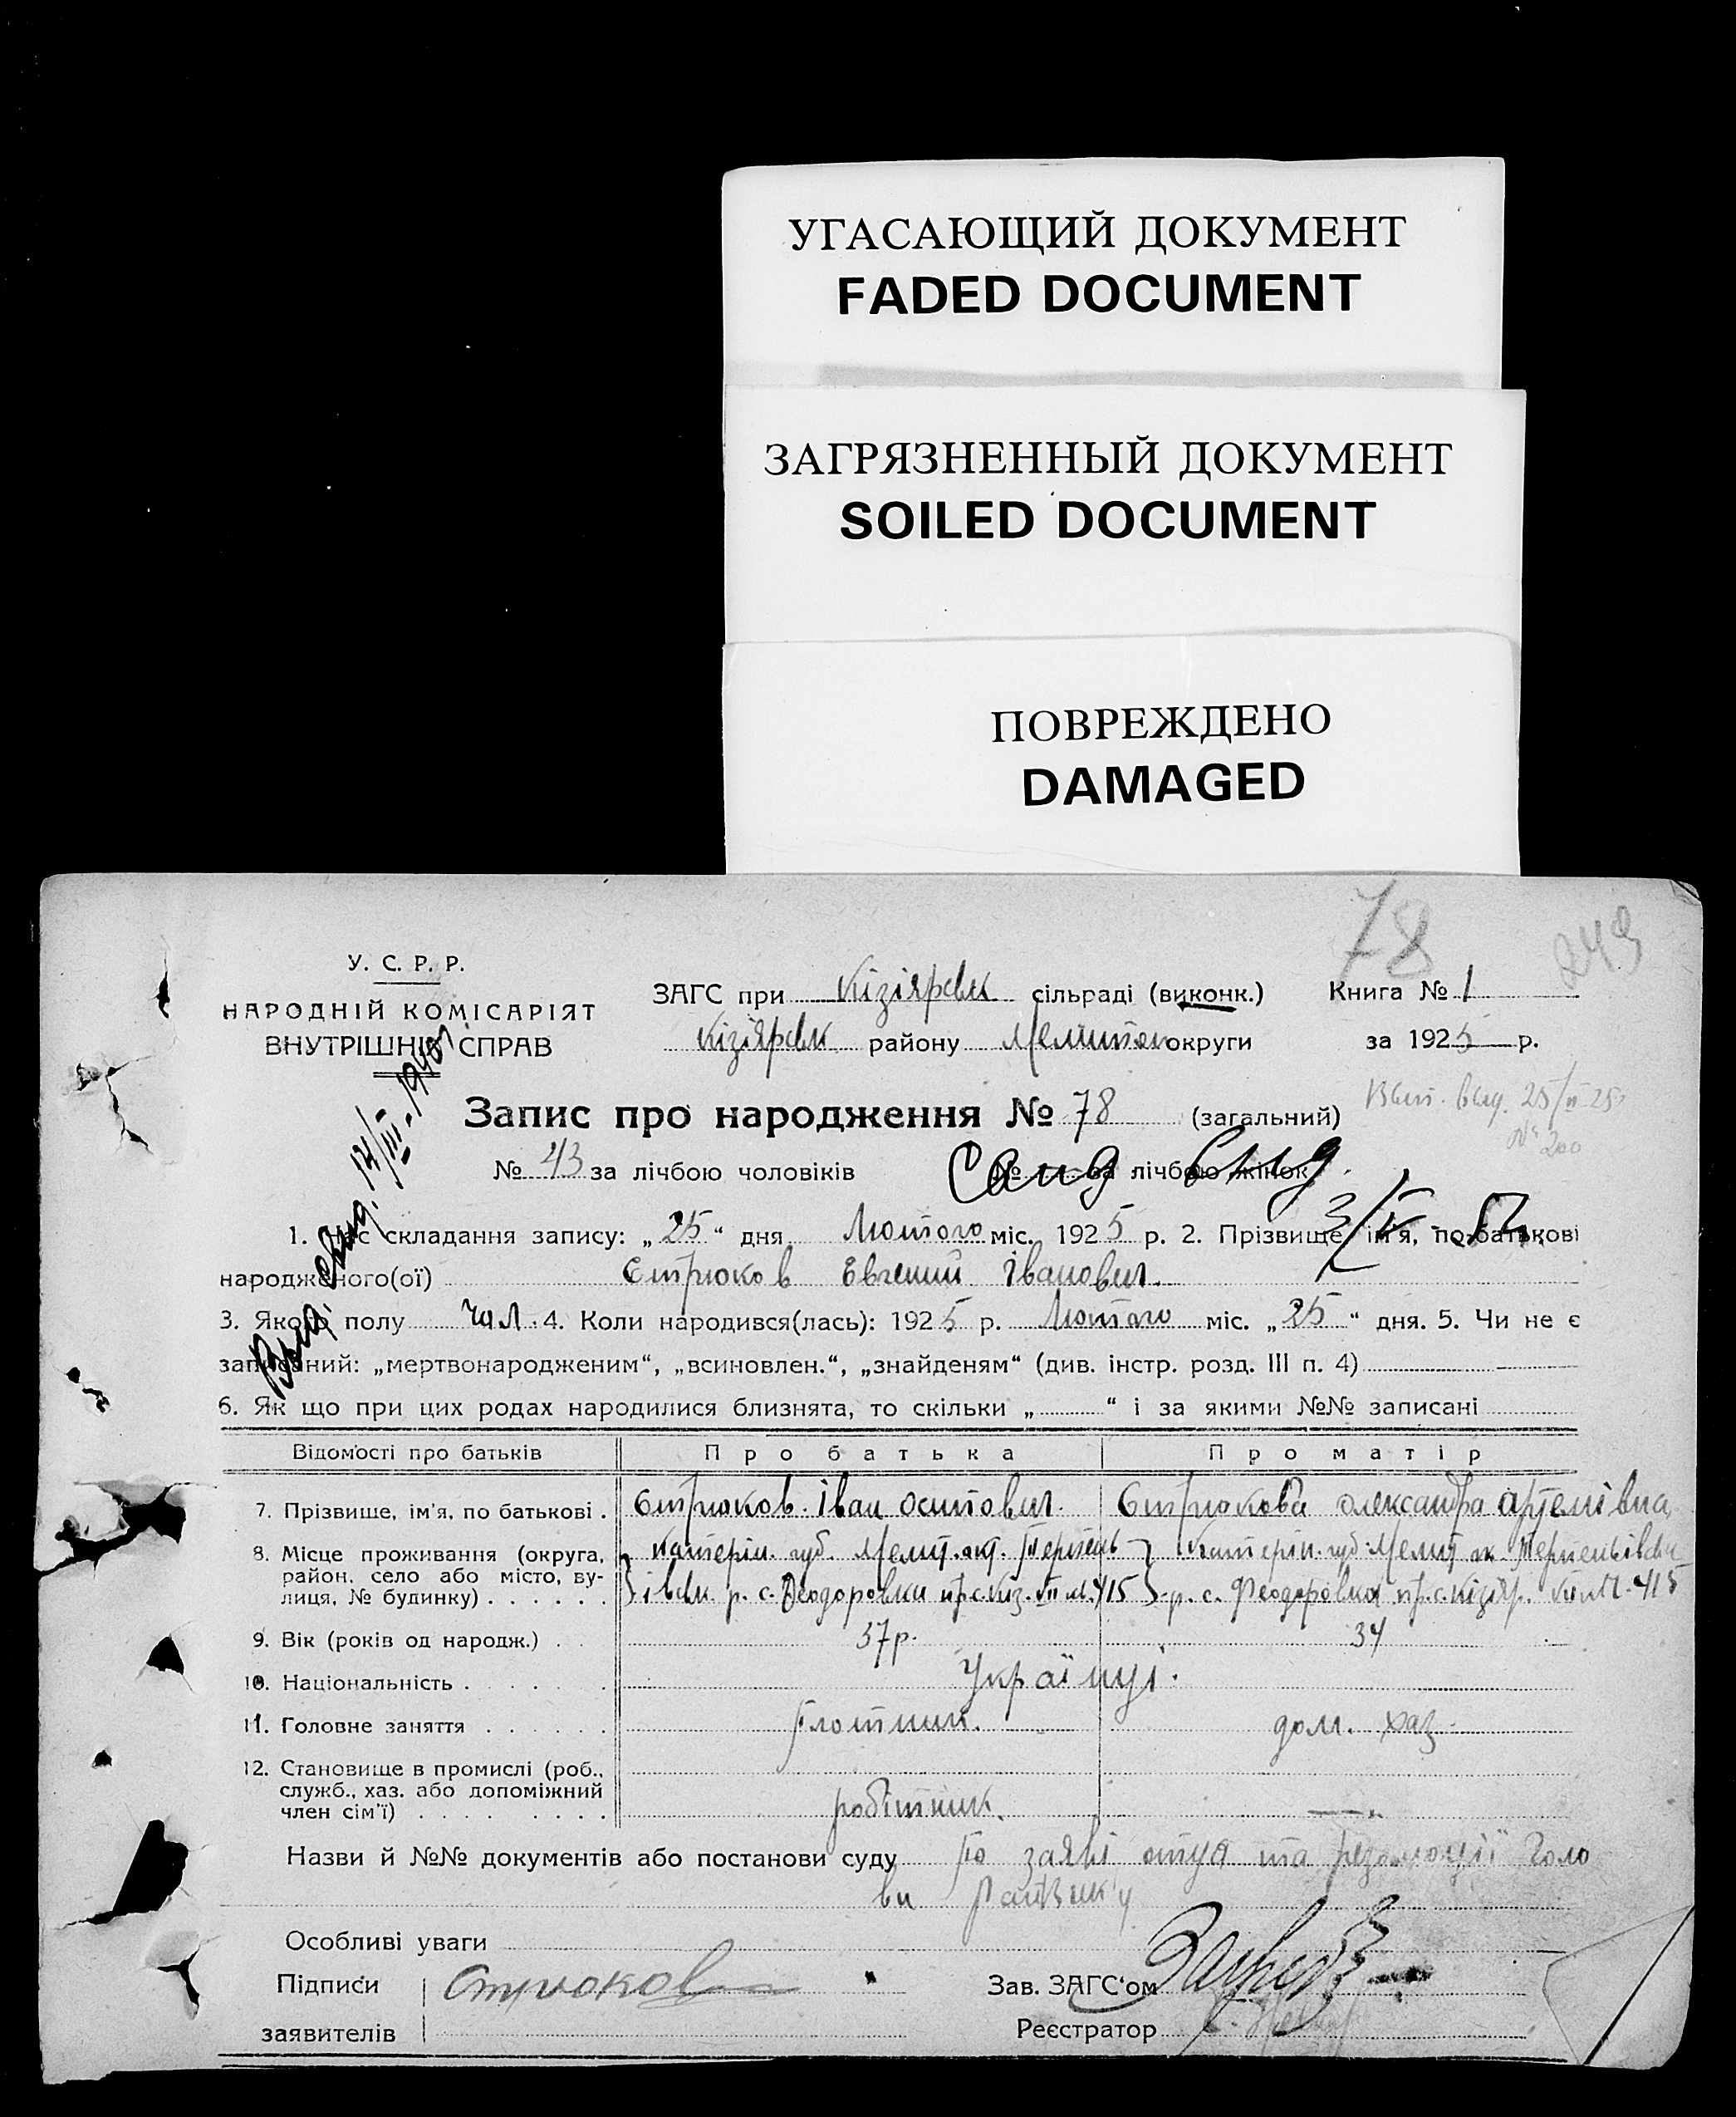 УГАСАЮЩИЙ ДОКУМЕНТ
FADED DOCUMENT
ЗАГРЯЗНЕННЫЙ ДОКУМЕНТ
SOILED DOCUMENT
ПОВРЕЖДЕНО
DAMAGED
78
249
У. С. Р. Р.
НАРОДНІЙ КОМІСАРІЯТ
ВНУТРІШНІХ СПРАВ
ЗАГС при Кізіярськ сільраді (виконк.) Книга № 1
Кізіярськ району Мелитоп округи за 1925 р.
Запис про народження № 78 (загальний)
Вип. выд. 25/II 25
№ 200
№ 43 за лічбою чоловіків № за лічбою жінок
3/IV-52
Выд. свид. 14/III-1948
1. Час складання запису: „25“ дня Лютого міс. 1925 р. 2. Прізвище, ім'я, по-батькові
народженого(ої) Стрюков Евгений Іванович.
3. Якого полу чол. 4. Коли народився(лась): 1925 р. Лютого міс. „25“ дня. 5. Чи не є
записаний: „мертвонародженим“, „всиновлен.“, „знайденям“ (див. інстр. розд. III п. 4)
6. Як що при цих родах народилися близнята, то скільки „ “ і за якими №№ записані
Відомості про батьків Про батька Про матір
7. Прізвище, ім'я, по батькові . Стрюков Іван Остапович. Стрюкова Олександра Артемівна
8. Місце проживання (округа, Катерін. губ. Мелит. окр. Терпень Катерін. губ. Мелит ок. Терпеньівськ
район, село або місто, ву-
лиця, № будинку) . . . . . . івськ. р. с. Феодоровка р. с. Феодоровка 415
9. Вік (років од народж.) . . 37 р. 34
10. Національність . . . . . . Українці.
11. Головне заняття . . . . . . Плотник. дом. хаз.
12. Становище в промислі (роб.,
служб., хаз. або допоміжний
член сім'ї) . . . . . . . . . робітник. —
Назви й №№ документів або постанови суду По заяві отця та резолюції Голо
ви Райвику
Особливі уваги
Підписи Стрюков Зав. ЗАГС'ом
заявителів Реєстратор